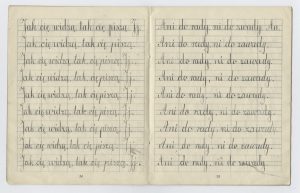 Jak cię widzą, tak cię piszą. Jj.
Jak cię widzą, tak cię piszą.
Jak cię widzą, tak cię piszą. Jj.
Jak cię widzą, tak cię piszą. Jj.
Jak cię widzą, tak cię piszą. Jj.
Jak cię widzą, tak cię piszą. Jj.
Jak cię widzą, tak cię piszą. Jj.
Jak cię widzą, tak cię piszą. Jj.
Ani do rady, ni do zwady. An
Ani do rady, ni do zawady.
Ani do rady, ni do zawady.
Ani do rady, ni do zawady.
Ani do rady, ni do zawady.
Ani do rady, ni do zawady.
Ani do rady, ni do zawady.
Ani do rady, ni do zawady.
Ani do rady, ni do zawady.